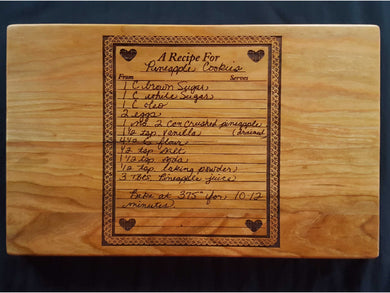 A Recipe For
Pineapple Cookies
From Serves
1 C brown Sugar
1 C white Sugar
1 C oleo
2 eggs
1 no. 2 can crushed pineapple
1 1/2 tsp vanilla (drained)
4 1/2 C flour
1/2 tsp salt
1 1/2 tsp soda
1/2 tsp baking powder
3 Tbls Pineapple juice
Bake at 375° for 10-12
minutes.